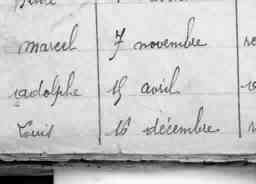 Marcel 7 novembre
Radolphe 15 avril
Louis 16 décembre